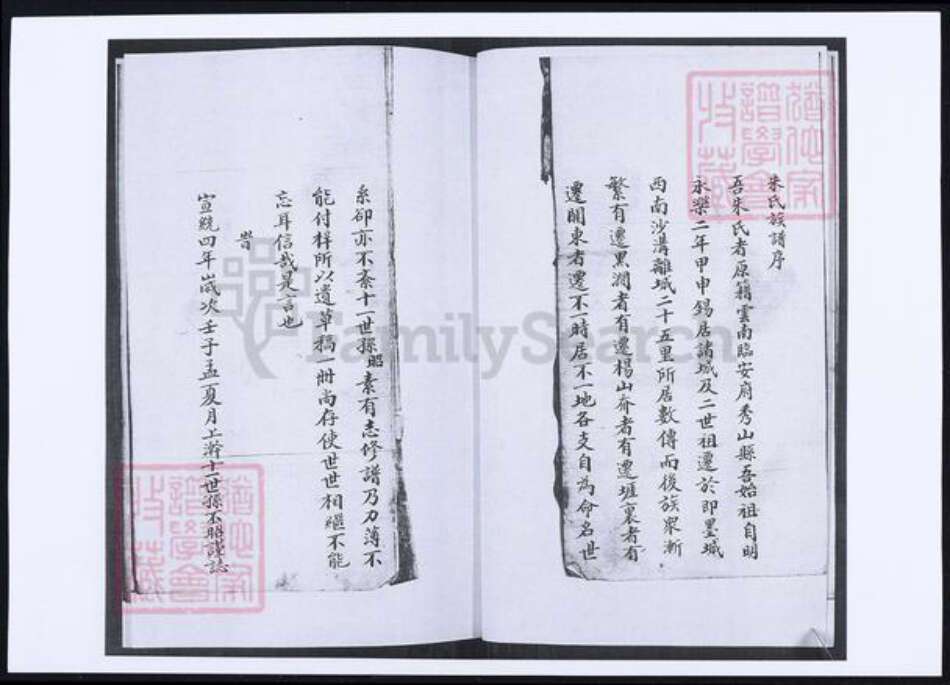 朱氏族譜序
吾朱氏者原籍雲南臨安府秀山縣吾始祖自明
永樂二年甲申錫居諸城及二世祖遷於即墨城
西南沙溝離城二十五里所居數傳而後族眾漸
繁有遷黑澗者有遷楊山夼者有遷堐裏者有
遷關東者遷不一時居不一地各支自為命名世
系卻亦不紊十一世孫昭素有志修譜乃力薄不
能付梓所以遺草稿一冊尚存使世世相繼不能
忘耳信哉是言也
旹
宣統四年歲次壬子孟夏月上澣十一世孫丕昭謹誌
猶他家
譜學會
收藏
猶他家
譜學會
收藏
FamilySearch